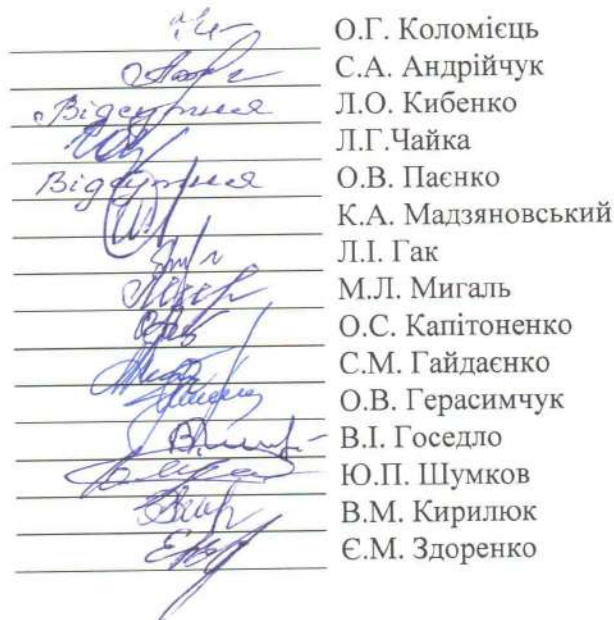 О.Г. Коломієць
С.А. Андрійчук
Відсутня Л.О. Кибенко
Л.Г.Чайка
Відсутня О.В. Паєнко
К.А. Мадзяновський
Л.І. Гак
М.Л. Мигаль
О.С. Капітоненко
С.М. Гайдаєнко
О.В. Герасимчук
В.І. Госедло
Ю.П. Шумков
В.М. Кирилюк
Є.М. Здоренко